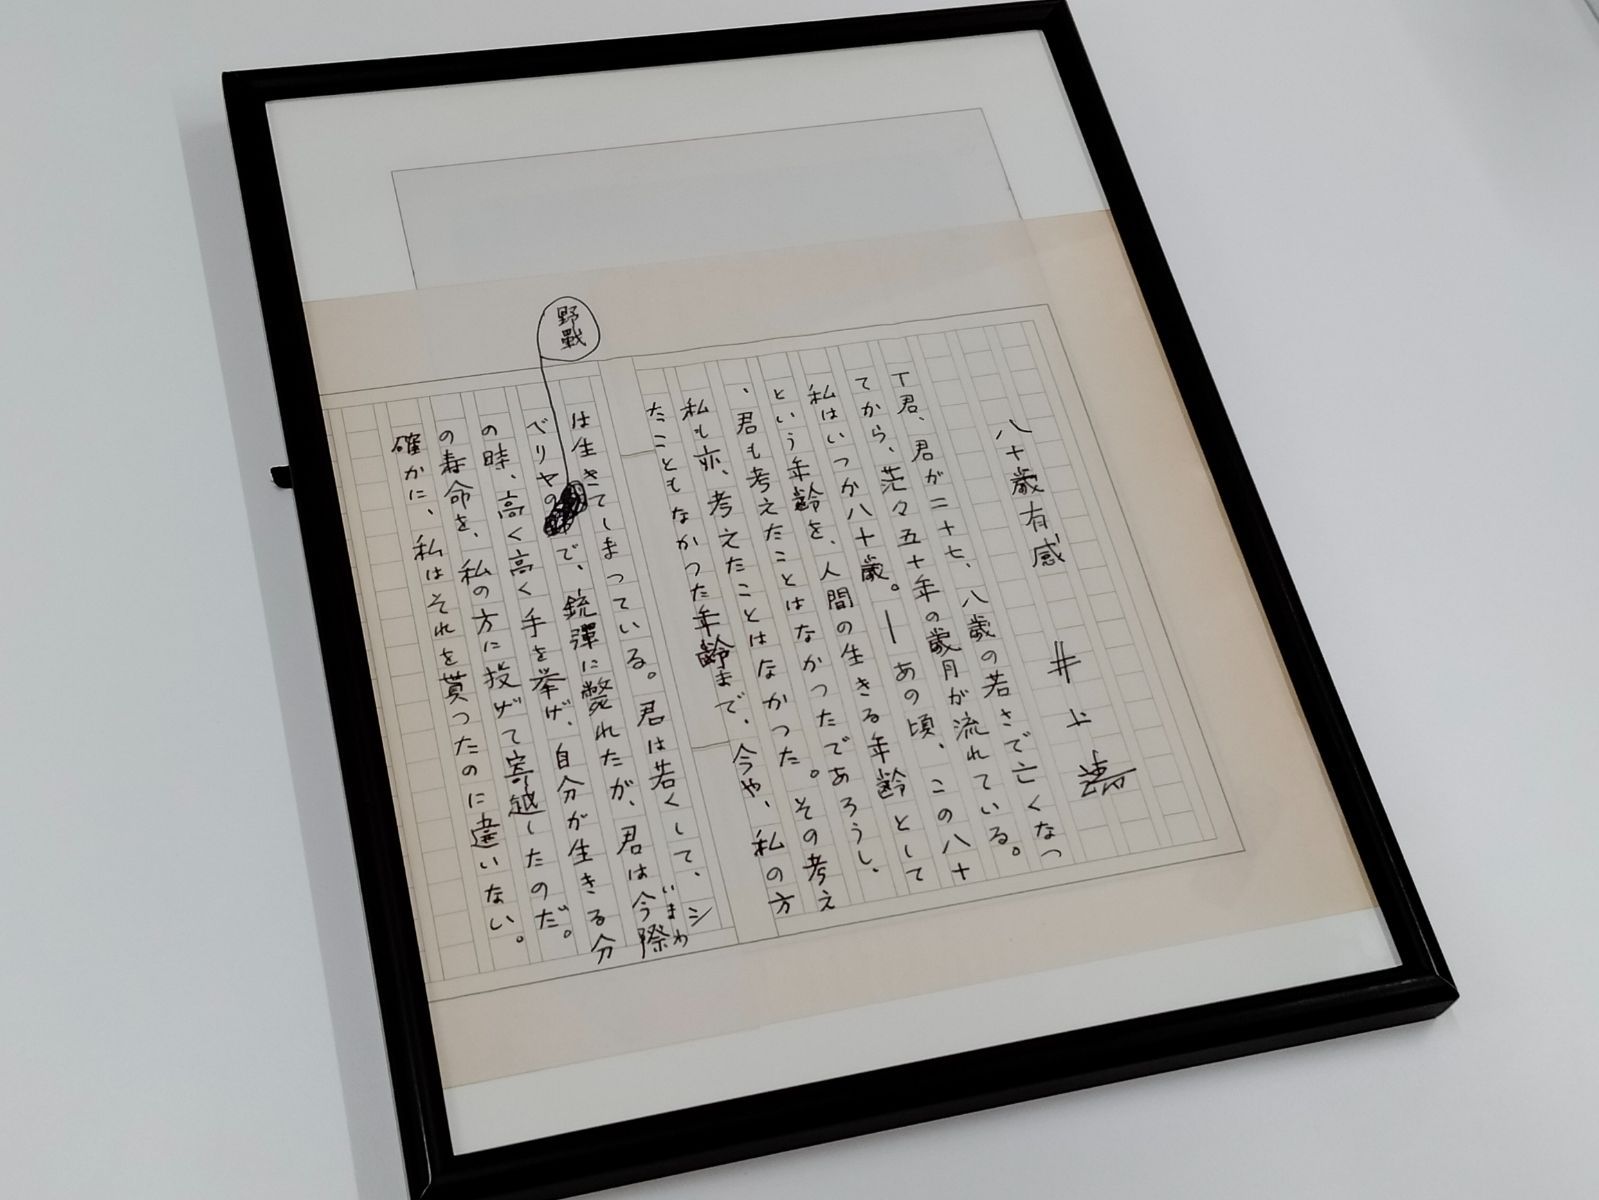 八十歳有感
井上靖
T君、君が二十七、八歳の若さで亡くなつ
てから、茫々五十年の歳月が流れている。
私はいつか八十歳。―あの頃、この八十
という年齢を、人間の生きる年齢として
、君も考えたことはなかつたであろうし、
私も亦、考えたことはなかつた。その考え
たこともなかつた年齢まで、今や、私の方
は生きてしまつている。君は若くして、シ
野戰
ベリヤので、銃彈に斃れたが、君は今際
いまわ
の時、高く高く手を挙げ、自分が生きる分
の寿命を、私の方に投げて寄越したのだ。
確かに、私はそれを貰つたのに違いない。